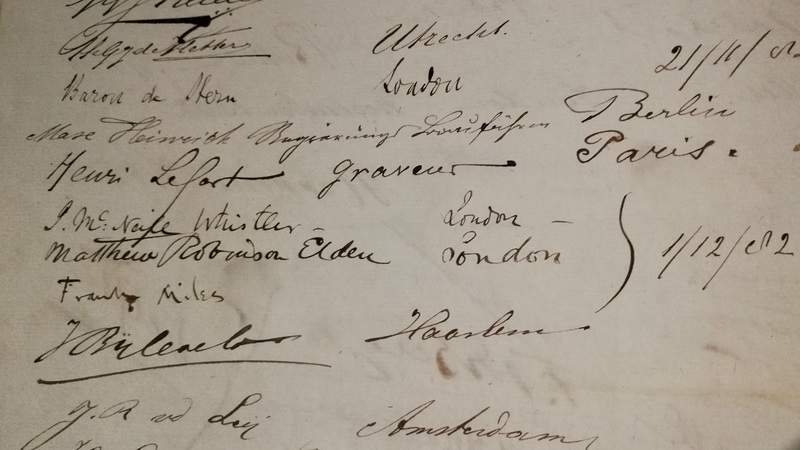 Utrecht. 21/11/82
Baron de Stern London
Max Heinrich Regierungs Bauführer Berlin
Henri Lefort graveur Paris.
J. Mc. Neill Whistler – London –
Matthew Robinson Elden London 1/12/82
Frank Miles
Haarlem
J. R vd Leij Amsterdam